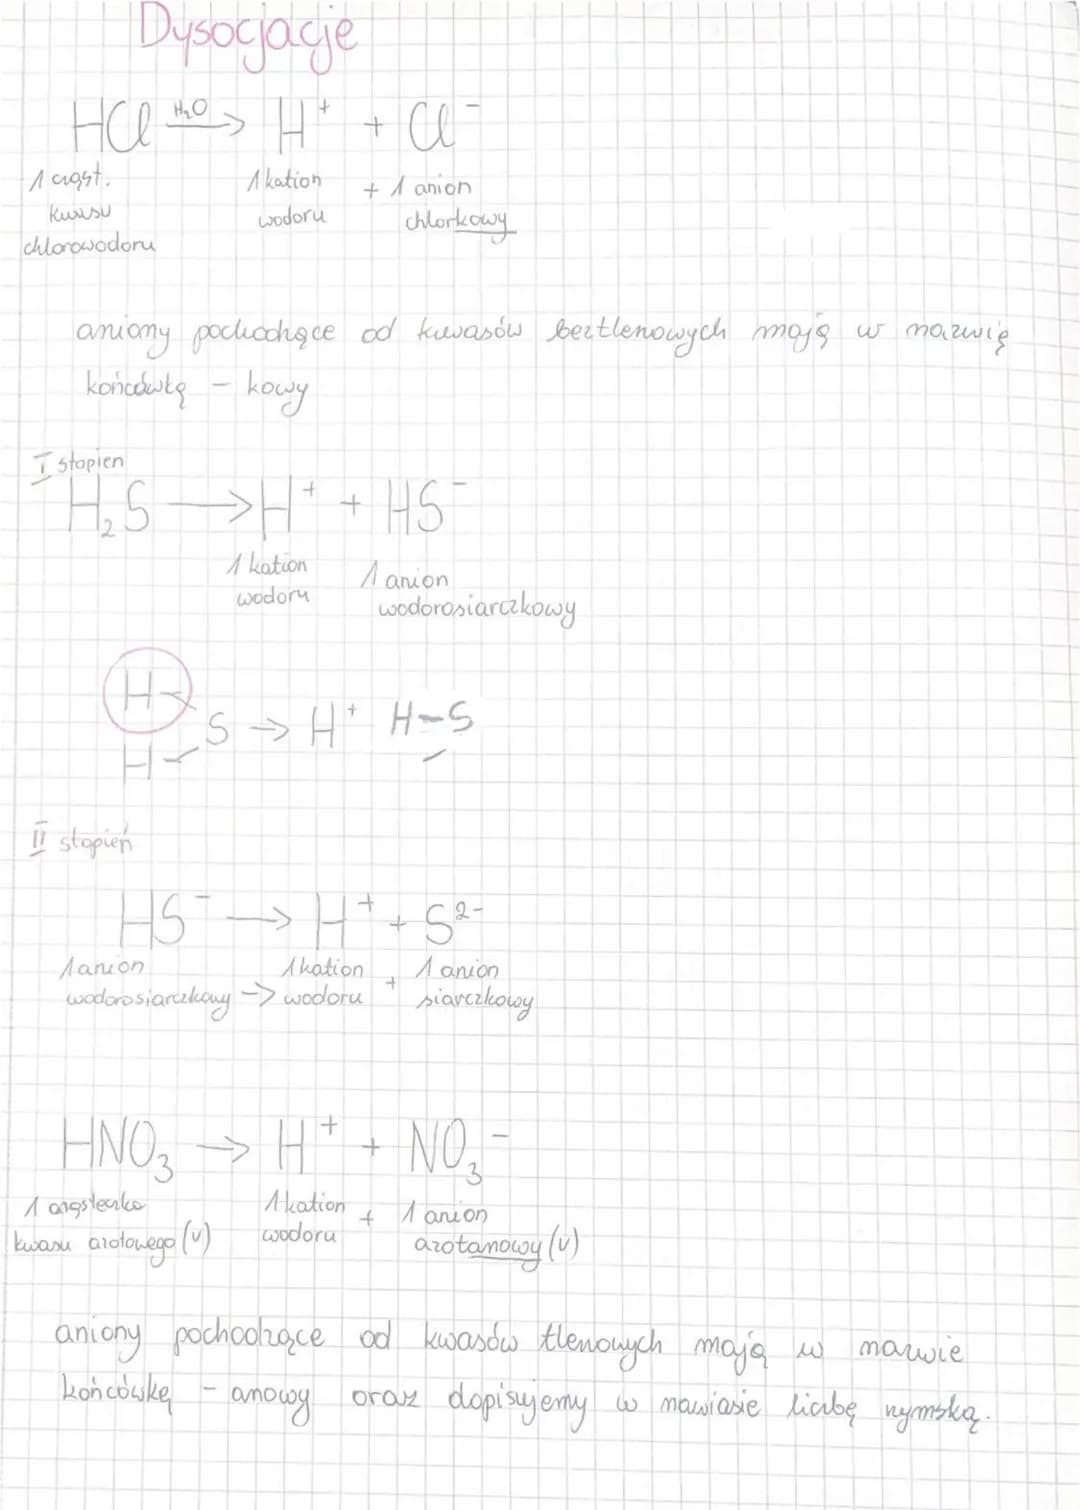 Dysocjacje
HCl H₂O→ H⁺ + Cl⁻
1 cząst. 1 kation + 1 anion
kwasu wodoru chlorkowy
chlorowodoru
aniony pochodzące od kwasów beztlenowych mają w nazwię
końcówkę - kowy
I stopien
H₂S → H⁺ + HS⁻
1 kation 1 anion
wodoru wodorosiarczkowy
H
S → H⁺ H-S⁻
H
II stopień
HS⁻ → H⁺ + S²⁻
1 anion 1 kation + 1 anion
wodorosiarczkowy → wodoru siarczkowy
HNO₃ → H⁺ + NO₃⁻
1 cząsteczka 1 kation + 1 anion
kwasu azotowego (V) wodoru azotanowy (V)
aniony pochodzące od kwasów tlenowych mają w nazwie
końcówkę - anowy oraz dopisujemy w nawiasie liczbę rzymską.